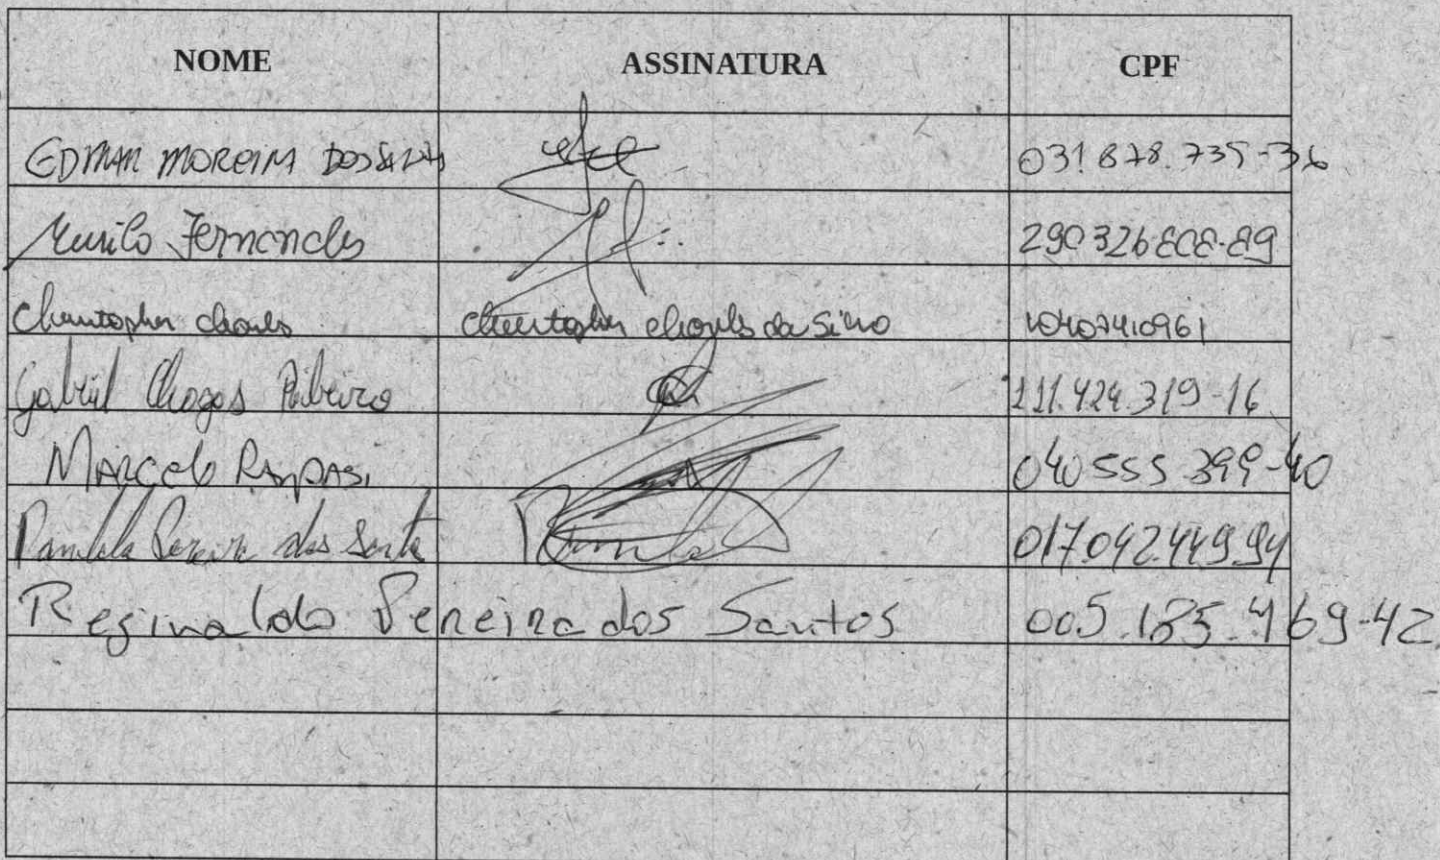 NOME ASSINATURA CPF
EDMAR MOREIRA DOS SANTOS 031.878.735-36
Murilo Fernandes 290326808-89
Christopher charles Christopher charles da Silva 10407410961
Gabriel Chagas Ribeiro 111.424.319-16
MARCELO 040555 399-40
Pereira dos Santos 017.042.449.94
Reginaldo Pereira dos Santos 005.185.469-42